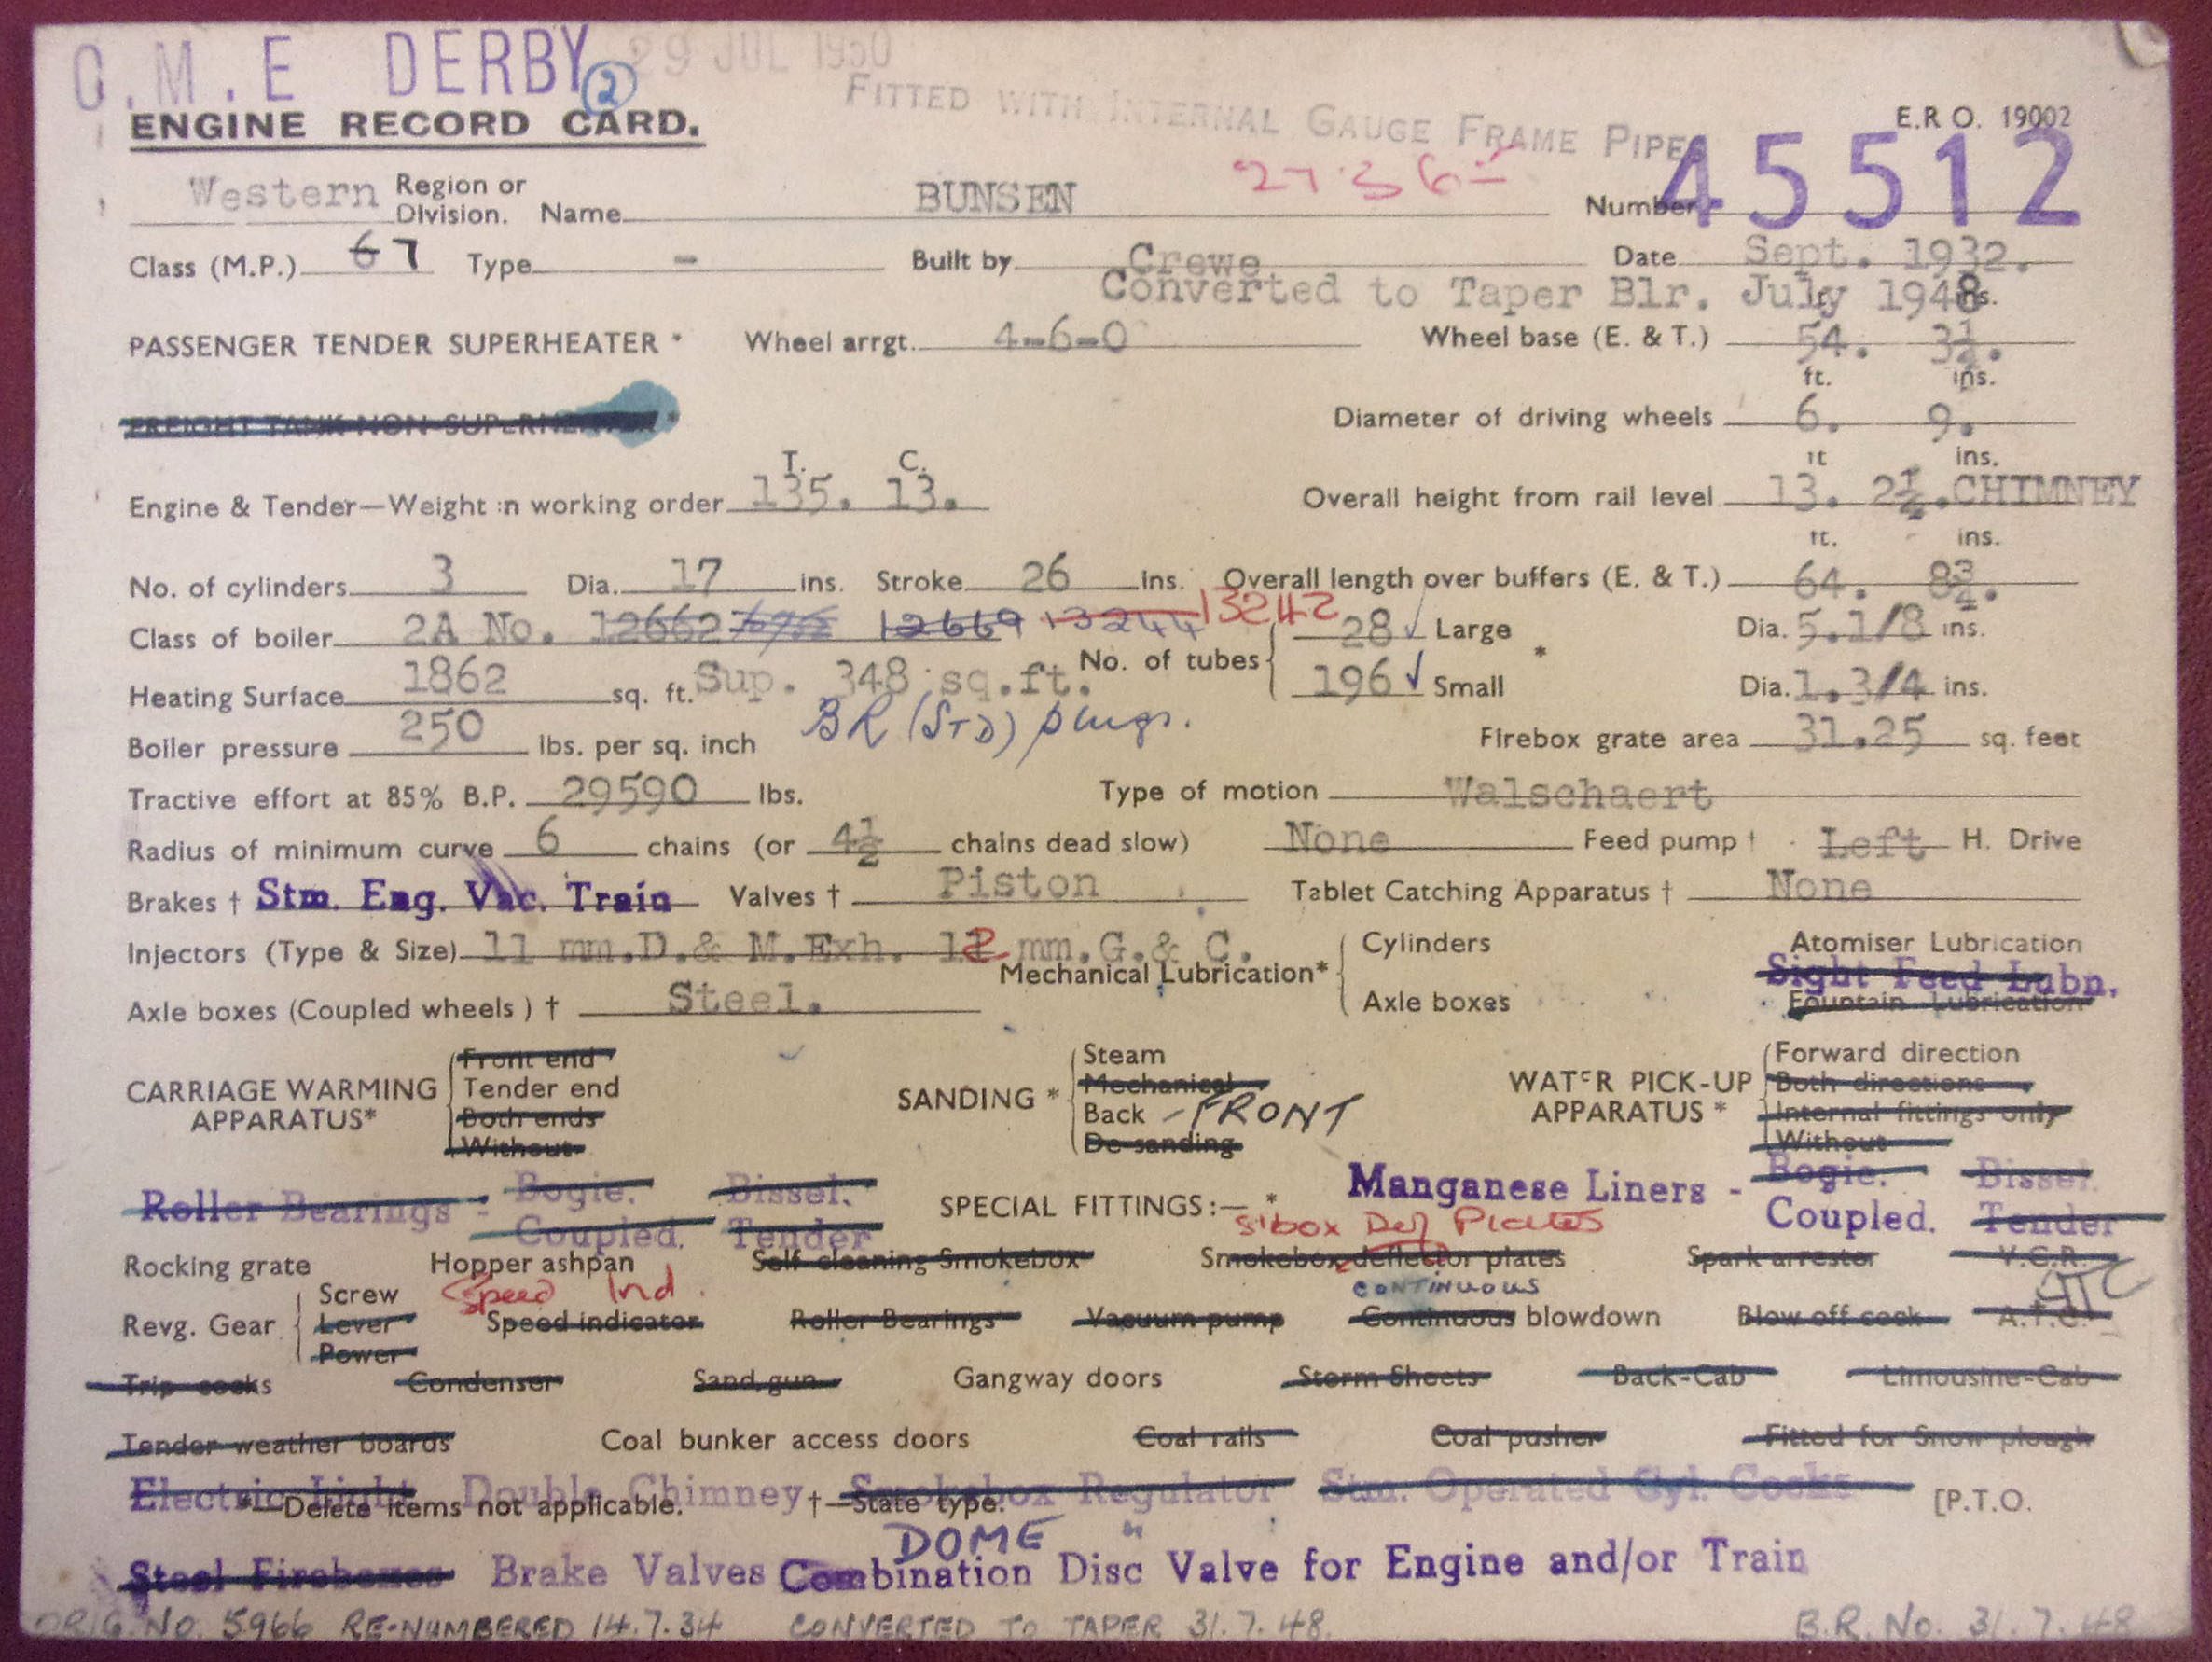 C.M.E DERBY 2 29 JUL 1950
FITTED WITH INTERNAL GAUGE FRAME PIPES
ENGINE RECORD CARD. E.R O. 19002
27365
Western Region or Division. Name BUNSEN Number 45512
Class (M.P.) 6 7 Type - Built by Crewe Date Sept. 1932.
Converted to Taper Blr. July 1948
ft. ins.
PASSENGER TENDER SUPERHEATER * Wheel arrgt. 4-6-0 Wheel base (E. & T.) 54. 3¼.
ft. ins.
FREIGHT TANK NON-SUPERHEATER * Diameter of driving wheels 6. 9.
T. C. ft ins.
Engine & Tender—Weight in working order 135. 13. Overall height from rail level 13. 2½. CHIMNEY
ft. ins.
No. of cylinders 3 Dia. 17 ins. Stroke 26 ins. Overall length over buffers (E. & T.) 64. 8¾.
Class of boiler 2A No. 12662 12669 13244 13242 28 Large Dia. 5.1/8 ins.
No. of tubes *
Heating Surface 1862 sq. ft. Sup. 348 sq.ft. 196 Small Dia. 1.3/4 ins.
Boiler pressure 250 lbs. per sq. inch BR (STD) plugs. Firebox grate area 31.25 sq. feet
Tractive effort at 85% B.P. 29590 lbs. Type of motion Walschaert
Radius of minimum curve 6 chains (or 4½ chains dead slow) None Feed pump † Left H. Drive
Brakes † Stm. Eng. Vac. Train Valves † Piston Tablet Catching Apparatus † None
Injectors (Type & Size) 11 mm.D.& M.Exh. 12 mm.G.& C. Cylinders Atomiser Lubrication
Mechanical Lubrication* Sight Feed Lubn.
Axle boxes (Coupled wheels ) † Steel. Axle boxes Fountain Lubrication
Front end Steam Forward direction
CARRIAGE WARMING APPARATUS* Tender end SANDING * Mechanical WATER PICK-UP APPARATUS * Both directions
Both ends Back - FRONT Internal fittings only
Without De-sanding Without
Roller Bearings - Bogie. Bissel. SPECIAL FITTINGS:— * Manganese Liners - Bogie. Bissel.
Coupled. Tender S/box Def Plates Coupled. Tender
Rocking grate Hopper ashpan Self-cleaning Smokebox Smokebox deflector plates Spark arrestor V.C.R.
Screw Speed Ind. CONTINUOUS ATC
Revg. Gear Lever Speed indicator Roller Bearings Vacuum pump Continuous blowdown Blow off cock A.T.C.
Power
Trip cocks Condenser Sand gun Gangway doors Storm Sheets Back-Cab Limousine-Cab
Tender weather boards Coal bunker access doors Coal rails Coal pusher Fitted for Snow plough
Electric Light Double Chimney Smokebox Regulator Stm. Operated Cyl. Cocks
*—Delete items not applicable. †—State type. [P.T.O.
DOME
Steel Fireboxes Brake Valves Combination Disc Valve for Engine and/or Train
ORIG. No. 5966 RE-NUMBERED 14.7.34 CONVERTED TO TAPER 31.7.48. B.R. No. 31.7.48